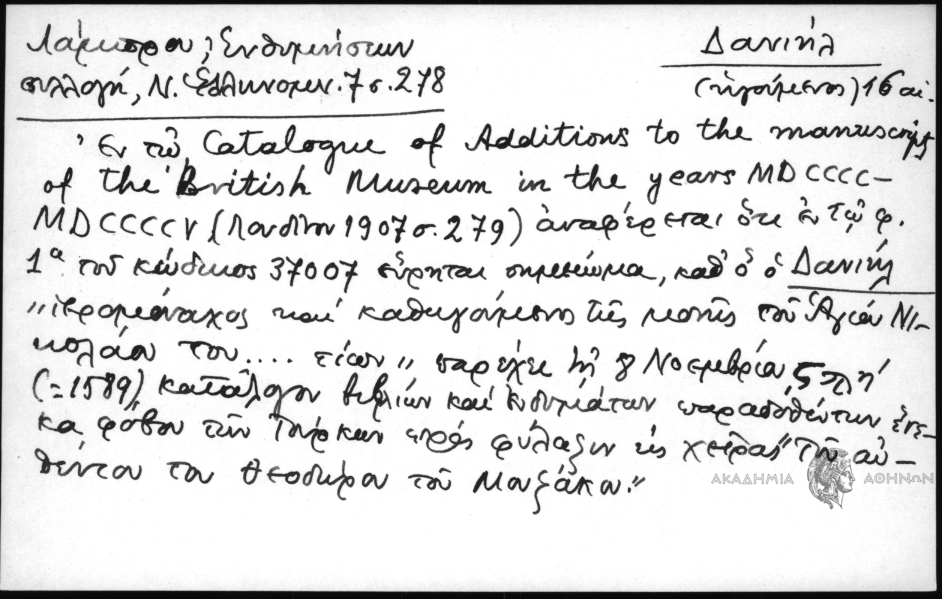 Λάμπρου, Ἐνθυμήσεων
Δανιήλ
συλλογή, Ν. Ἑλληνομν. 7 σ. 278
(ἡγούμενος) 16 αἰ.
Ἐν τῷ Catalogue of Additions to the manuscripts
of the British Museum in the years MDCCCC-
MDCCCCV (Λονδῖνον 1907 σ. 279) ἀναφέρεται ὅτι ἐν τῷ φ.
1α τοῦ κώδικος 37007 εὕρηται σημείωμα, καθ' ὃ ὁ Δανιήλ
„ἱερομόναχος καὶ καθηγούμενος τῆς μονῆς τοῦ Ἁγίου Νι-
κολάου του.... τίων„ παρέχει τῇ 8 Νοεμβρίου
(=1589) κατάλογον βιβλίων καὶ ἐνδυμάτων παραδοθέντων ἕνε-
κα φόβου τῶν Τούρκων πρὸς φύλαξιν εἰς χεῖρας „τοῦ αὐ-
θέντου του Θεοδώρου τοῦ Μουζάκου.„
ΑΚΑΔΗΜΙΑ ΑΘΗΝΩΝ